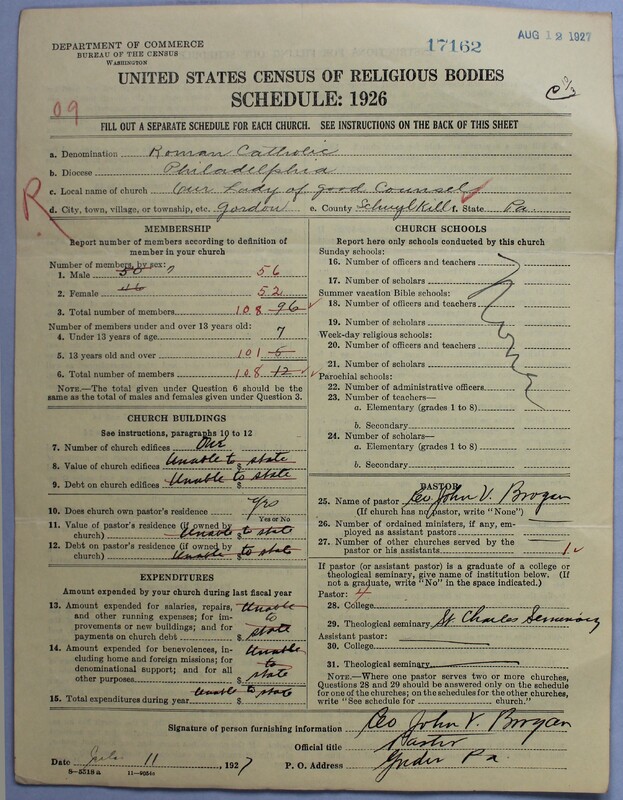 DEPARTMENT OF COMMERCE
BUREAU OF THE CENSUS
WASHINGTON
17162
AUG 12 1927
UNITED STATES CENSUS OF RELIGIOUS BODIES
SCHEDULE: 1926
09
FILL OUT A SEPARATE SCHEDULE FOR EACH CHURCH. SEE INSTRUCTIONS ON THE BACK OF THIS SHEET
a. Denomination Roman Catholic
b. Diocese Philadelphia
c. Local name of church Our Lady of good Counsel
d. City, town, village, or township, etc. Gordon e. County Schuylkill f. State Pa.
R
MEMBERSHIP
Report number of members according to definition of member in your church
Number of members, by sex:
1. Male 50 ? 56
2. Female 46 52
3. Total number of members 108 96
Number of members under and over 13 years old:
4. Under 13 years of age 7
5. 13 years old and over 101 5
6. Total number of members 108 12
NOTE.—The total given under Question 6 should be the same as the total of males and females given under Question 3.
CHURCH BUILDINGS
See instructions, paragraphs 10 to 12
7. Number of church edifices One
8. Value of church edifices $ Unable to state
9. Debt on church edifices $ Unable to state
10. Does church own pastor's residence? Yes
Yes or No
11. Value of pastor's residence (if owned by church) $ Unable to state
12. Debt on pastor's residence (if owned by church) $ Unable to state
EXPENDITURES
Amount expended by your church during last fiscal year
13. Amount expended for salaries, repairs, and other running expenses; for improvements or new buildings; and for payments on church debt $ Unable to state
14. Amount expended for benevolences, including home and foreign missions; for denominational support; and for all other purposes $ Unable to state
15. Total expenditures during year $ Unable to state
CHURCH SCHOOLS
Report here only schools conducted by this church
Sunday schools:
16. Number of officers and teachers
17. Number of scholars
Summer vacation Bible schools:
18. Number of officers and teachers
19. Number of scholars
Week-day religious schools:
20. Number of officers and teachers
21. Number of scholars
Parochial schools:
22. Number of administrative officers
23. Number of teachers—
a. Elementary (grades 1 to 8)
b. Secondary
24. Number of scholars—
a. Elementary (grades 1 to 8)
b. Secondary
None
PASTOR
25. Name of pastor John V. Brogan
(If church has no pastor, write "None")
26. Number of ordained ministers, if any, employed as assistant pastors
27. Number of other churches served by the pastor or his assistants 1
If pastor (or assistant pastor) is a graduate of a college or theological seminary, give name of institution below. (If not a graduate, write "No" in the space indicated.)
Pastor: 4
28. College
29. Theological seminary St Charles Seminary
Assistant pastor:
30. College
31. Theological seminary
NOTE.—Where one pastor serves two or more churches, Questions 28 and 29 should be answered only on the schedule for one of the churches; on the schedules for the other churches, write "See schedule for church."
Signature of person furnishing information John V. Brogan
Official title Pastor
Date 11, 1927 P. O. Address Pa.
8-5518a 11-9054c